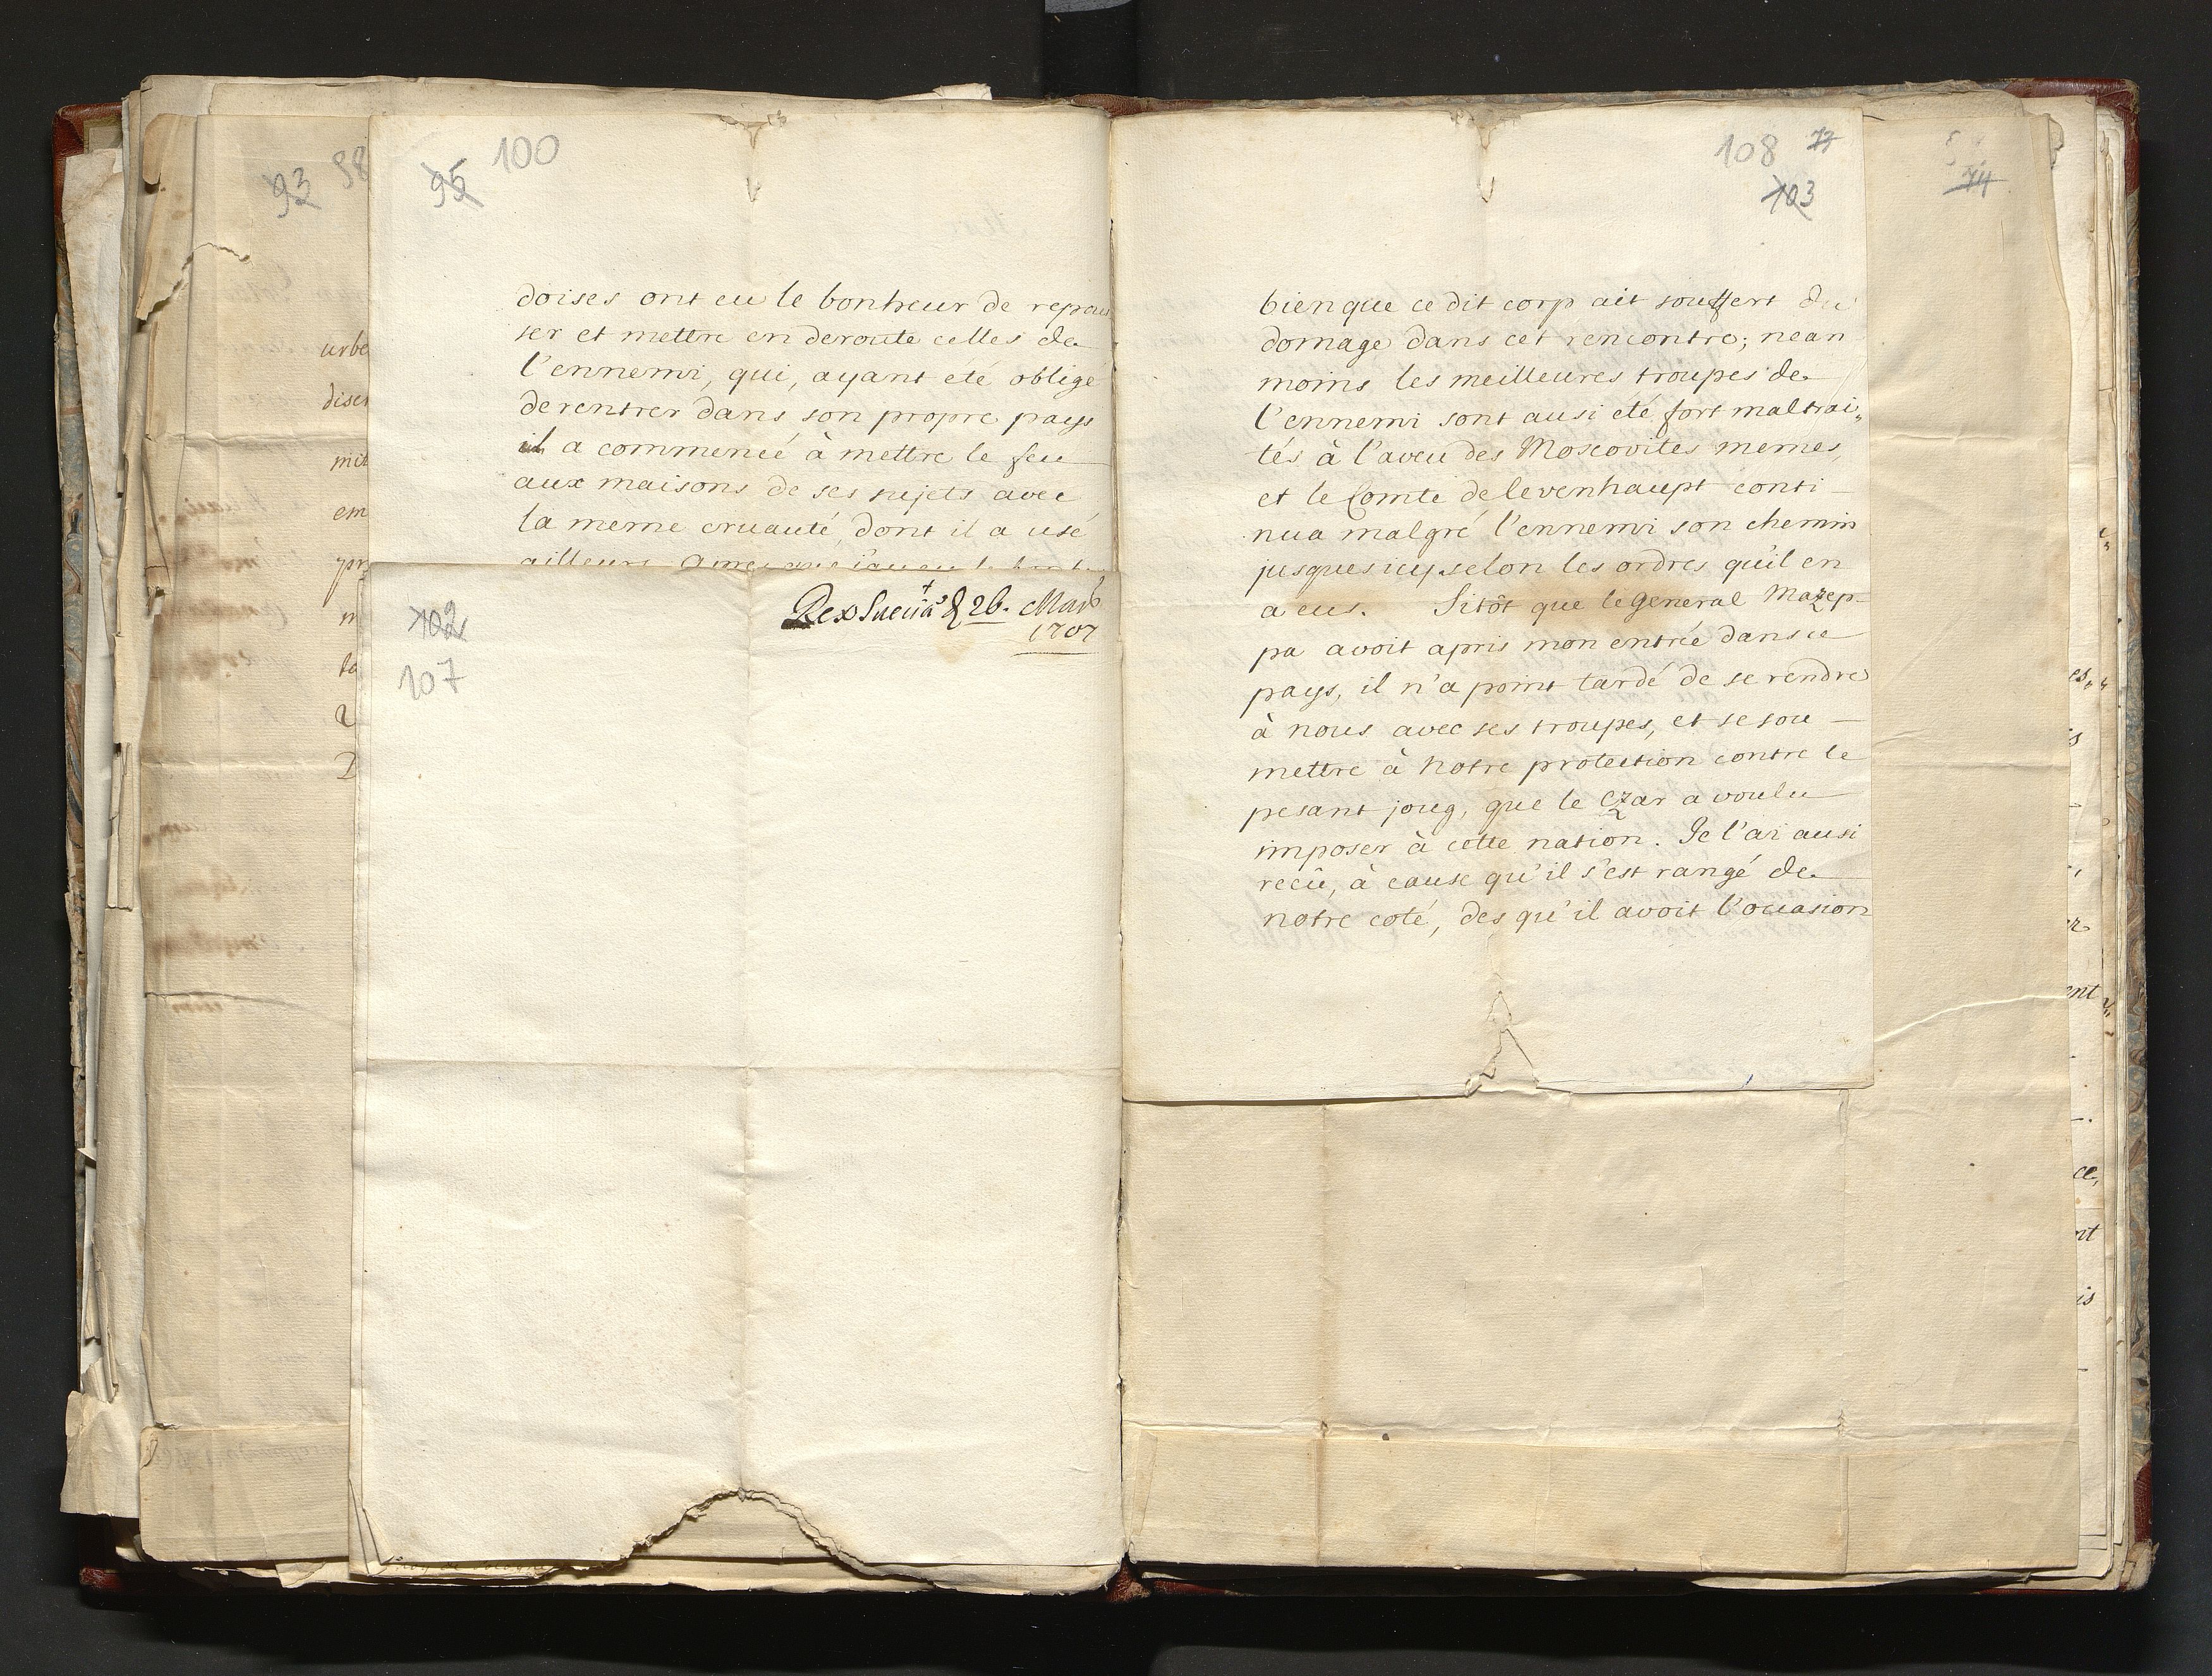 93 98
95 100
doises ont eu le bonheur de repous
ser et mettre en deroute celles de
l'ennemi, qui, ayant eté obligé
de rentrer dans son propre pays
il a commencé à mettre le feu
aux maisons de ses sujets avec
la meme cruauté, dont il a usé
ailleurs
urbe
disci
mit
em
102
107
Rex Sueciæ d 26. Mart
1707
108 77
103
bien que ce dit corp ait souffert du
domage dans cet rencontre; nean
moins les meilleures troupes de
l'ennemi sont ausi été fort maltrai„
tés à l'aveu des Moscovites memes,
et le Comte de levenhaupt conti-
nua malgré l'ennemi son chemin
jusques icy selon les ordres qu'il en
a eus. Sitôt que le General Mazep-
pa avoit apris mon entrée dans ce
pays, il n'a point tardé de se rendre
à nous avec ses troupes, et se sou-
mettre à notre protection contre le
pesant joug, que le Czar a voulu
imposer à cette nation. Je l'ai ausi
recû, à cause qu'il s'est rangé de
notre coté, des qu'il avoit l'ocasion
74